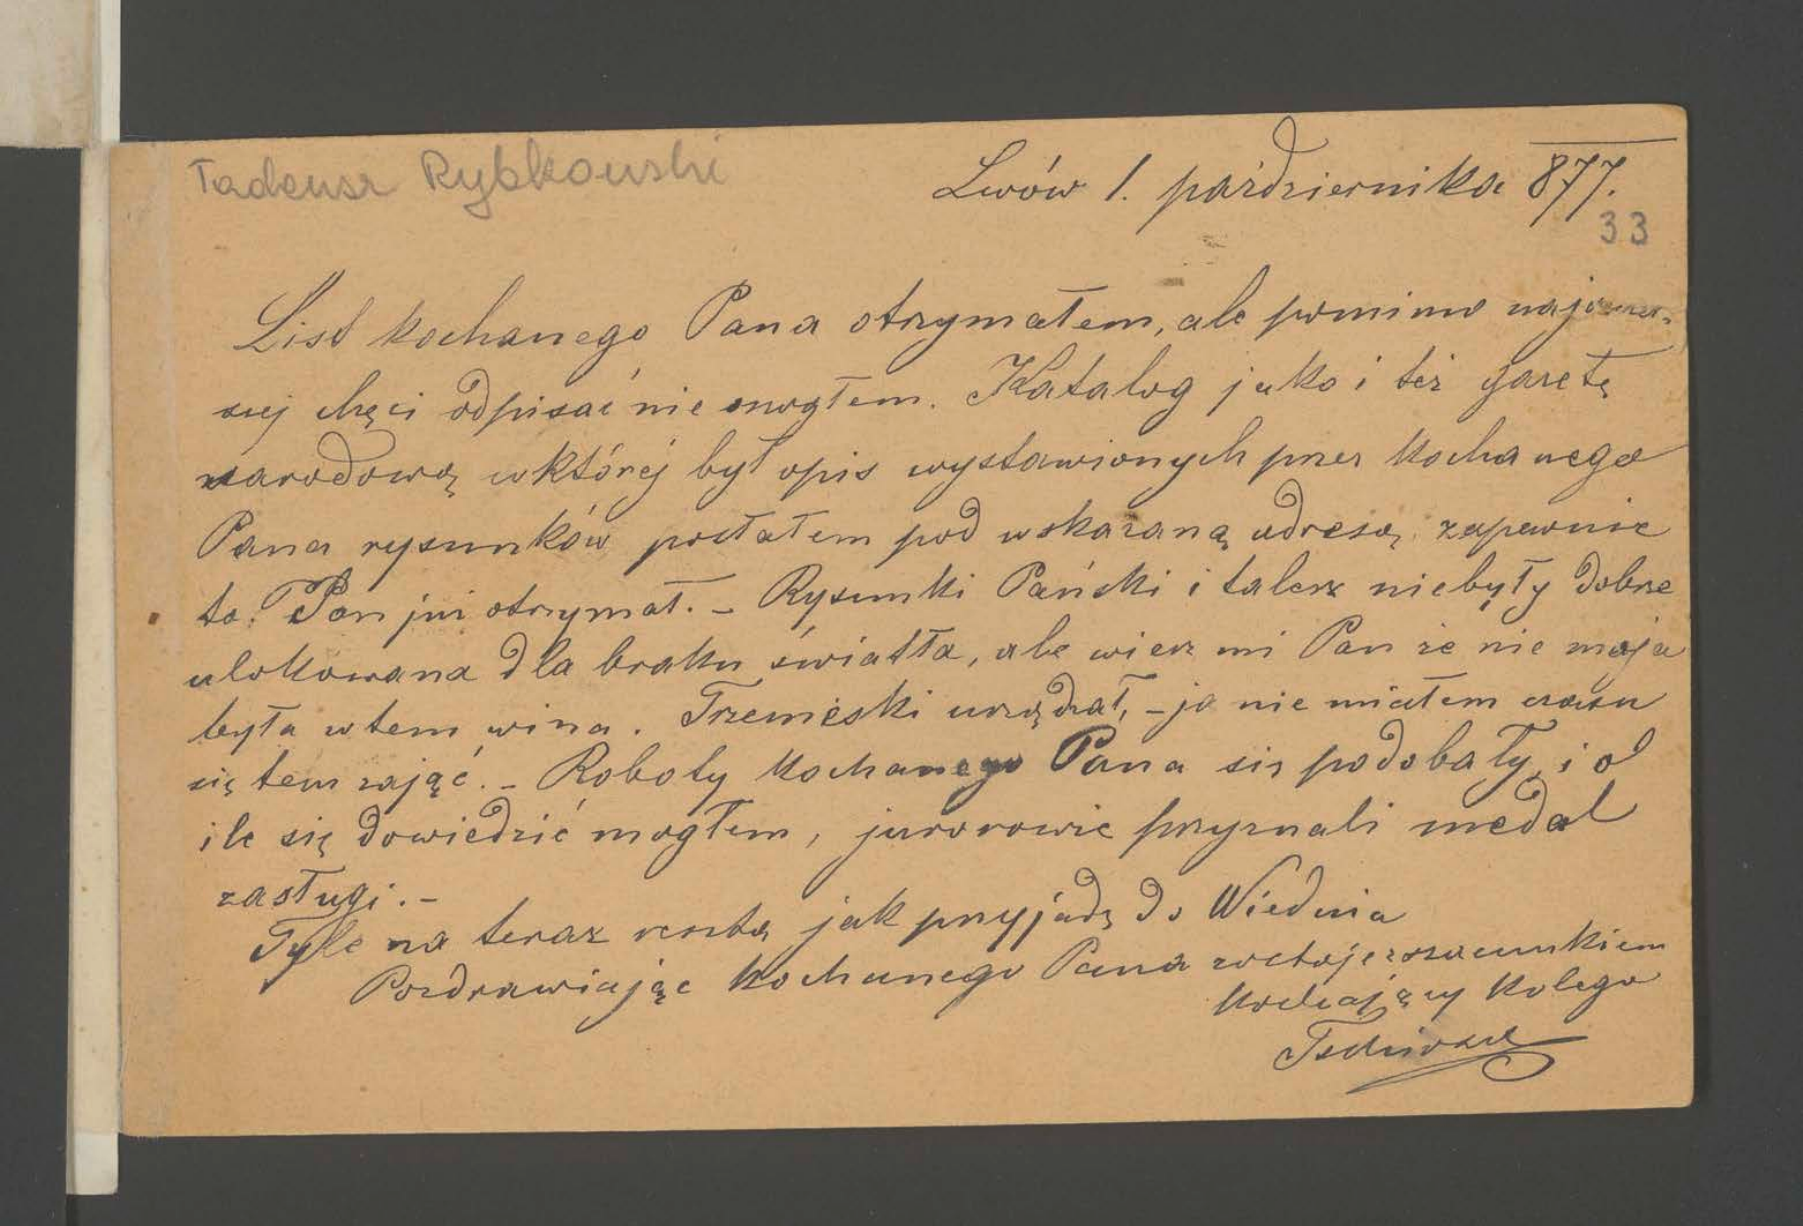 Tadeusz Rybkowski
Lwów 1. października 877.
33
List kochanego Pana otrzymałem, ale pomimo
szej chęci odpisać nie mogłem. Katalog jako i też gazetę
narodową w której był opis wystawionych przez kochanego
Pana rysunków posłałem pod wskazaną adresą, zapewnie
to Pan już otrzymał. – Rysunki Pański i talerz niebyły dobrze
ulokowana dla braku światła, ale wierz mi Pan że nie moja
była w tem wina. Trzemeski urządzał, – ja nie miałem czasu
się tem zająć. – Roboty kochanego Pana się podobały, i o
ile się dowiedzić mogłem, jurorowie przyznali medal
zasługi. –
Tyle na teraz resztę jak przyjadę do Wiednia
Pozdrawiając kochanego Pana zostaje z szacunkiem
kochający kolega